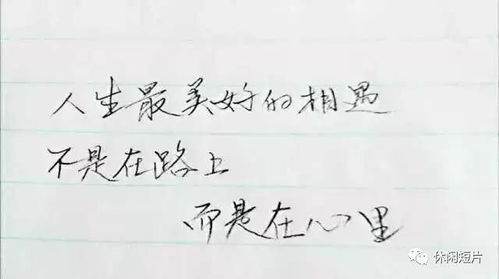 人生最美好的相遇
不是在路上
而是在心里
休闲短片